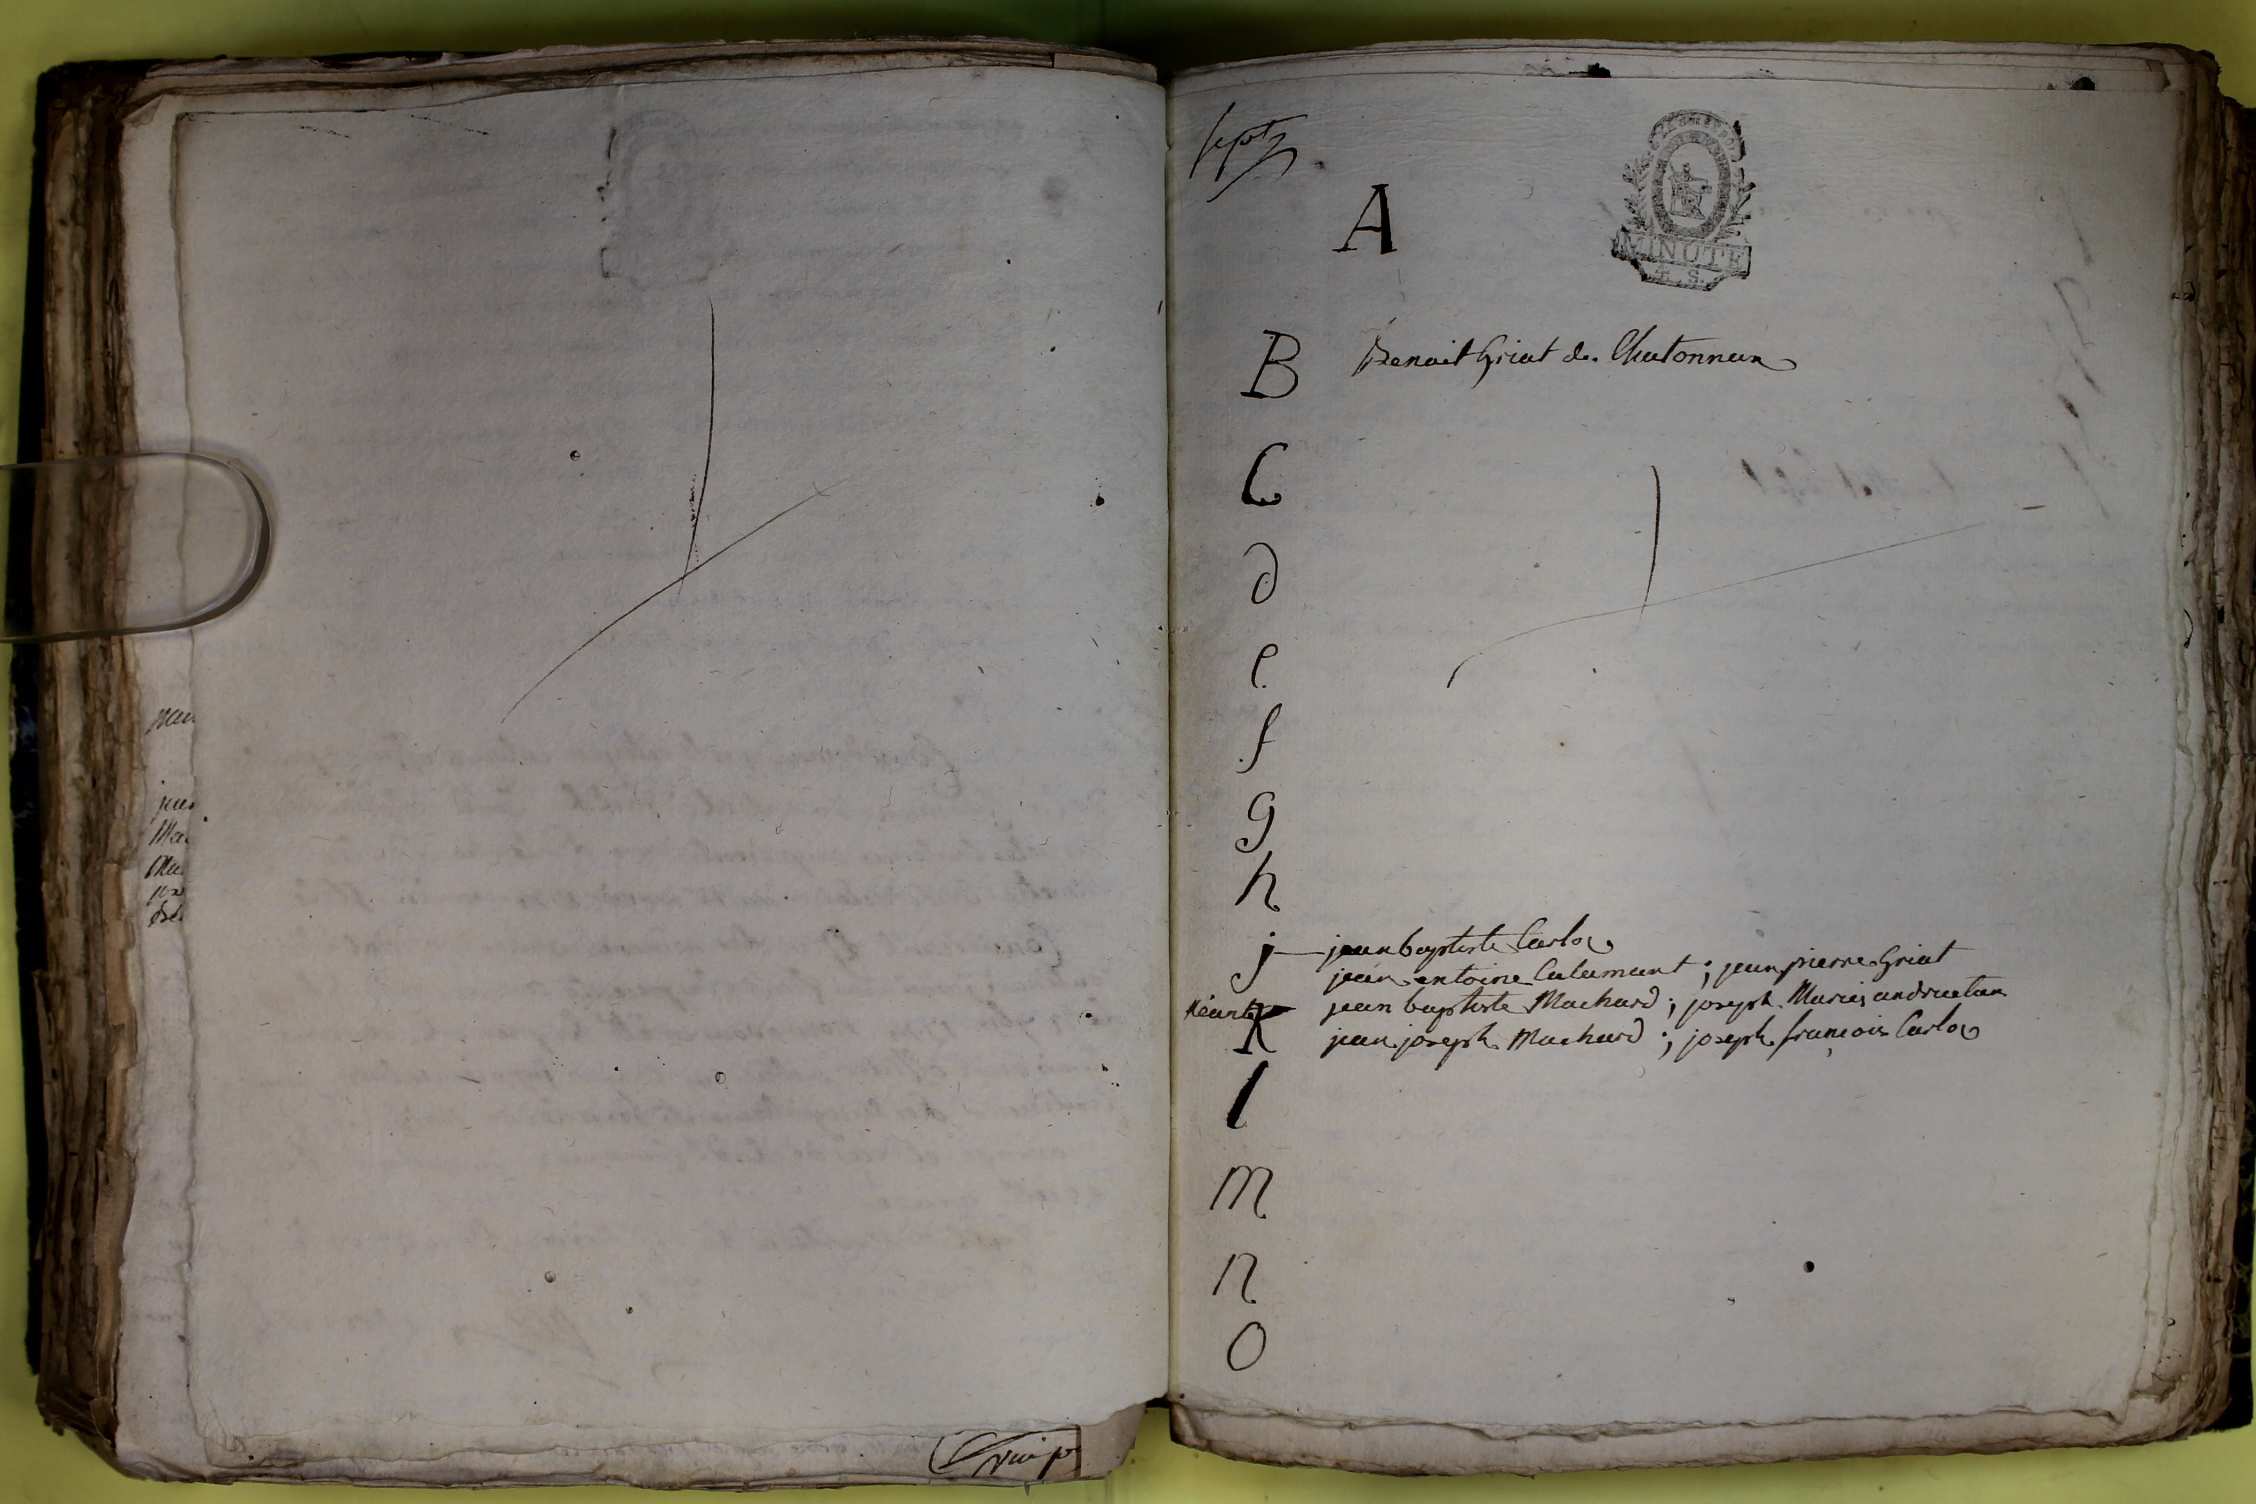 sept
A
MINUTE
4. S.
B Benoit Griat de Chatonnan
C
d
e
f
g
h
j jean baptiste Carloz
jean antoine Calamant ; jean pierre Griat
jean baptiste Machard ; joseph Marie andruetan
Néant K jean joseph Machard ; joseph françois Carloz
l
m
n
o